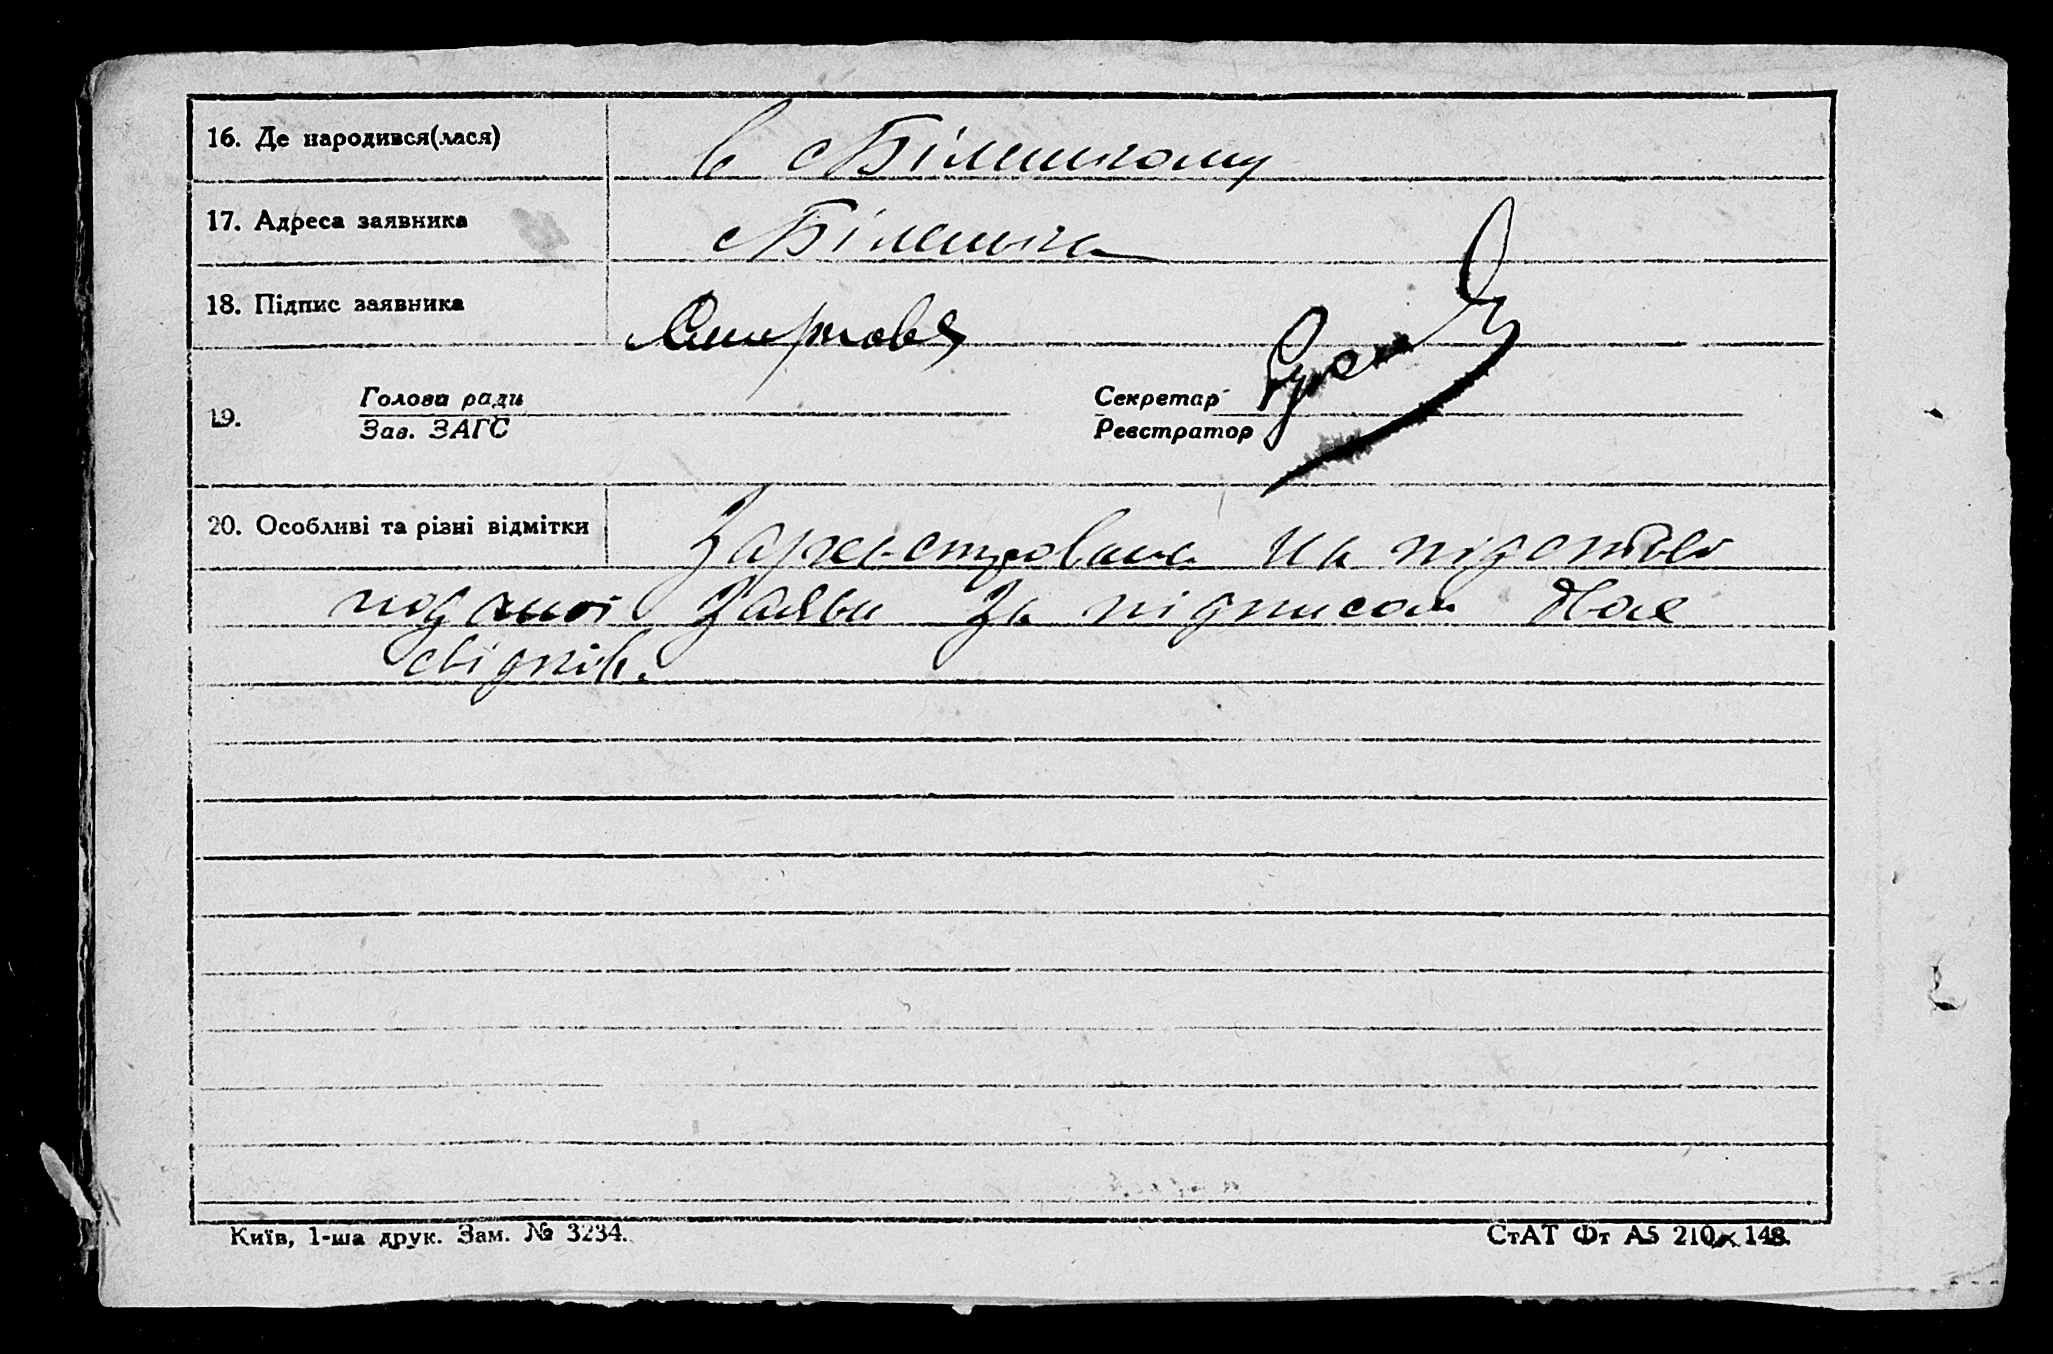 16. Де народився(лася) в с Білецькому
17. Адреса заявника с Білецьке
18. Підпис заявника Смирнова
19. Голова ради Секретар
Зав. ЗАГС Реєстратор
20. Особливі та різні відмітки Зареєстровано на підставі
поданої заяви за підписом двох
свідків.
Київ, 1-ша друк. Зам. № 3234. СтАТ Фт А5 210 × 148.